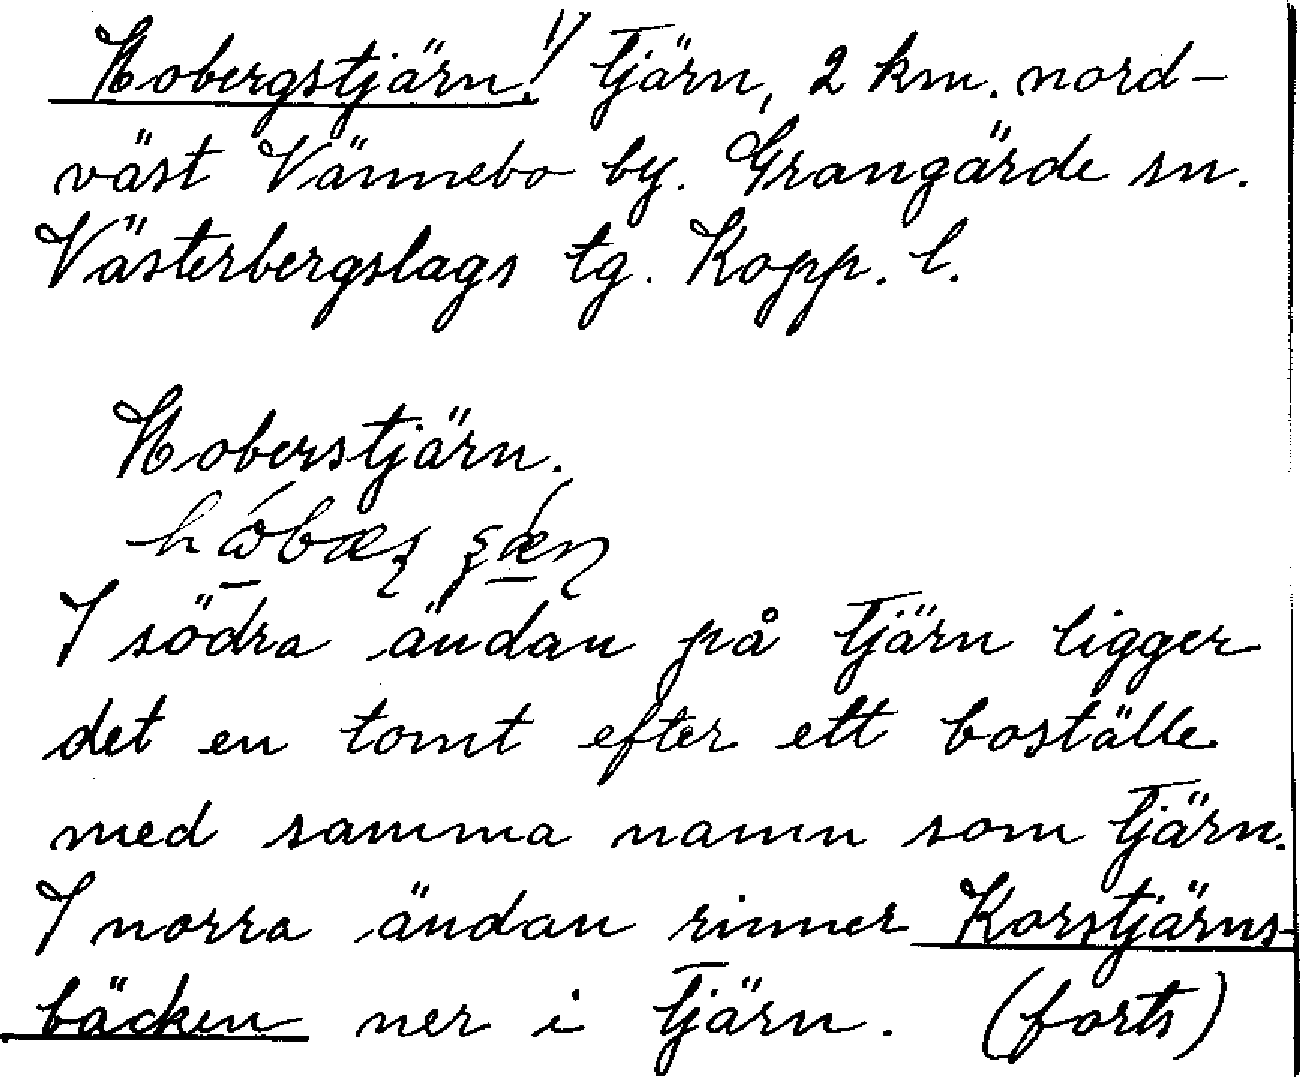 Hobergstjärn.¹⁾ Tjärn, 2 km. nord-
väst Vännebo by. Grangärde sn.
Västerbergslags tg. Kopp. l.
Hoberstjärn.
I södra ändan på tjärn ligger
det en tomt efter ett boställe
med samma namn som tjärn.
I norra ändan rinner Korstjärns-
bäcken ner i tjärn. (forts)